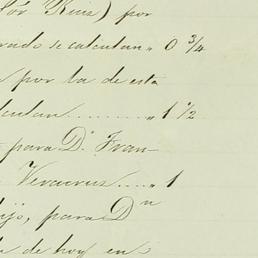 Ruiz) por
rado se calculan " 0 3/4
por la de esta
culan ........ " 1 1/2
para Dn Fran-
Veracruz ..... " 1
ijo, para Dn
de hoy en